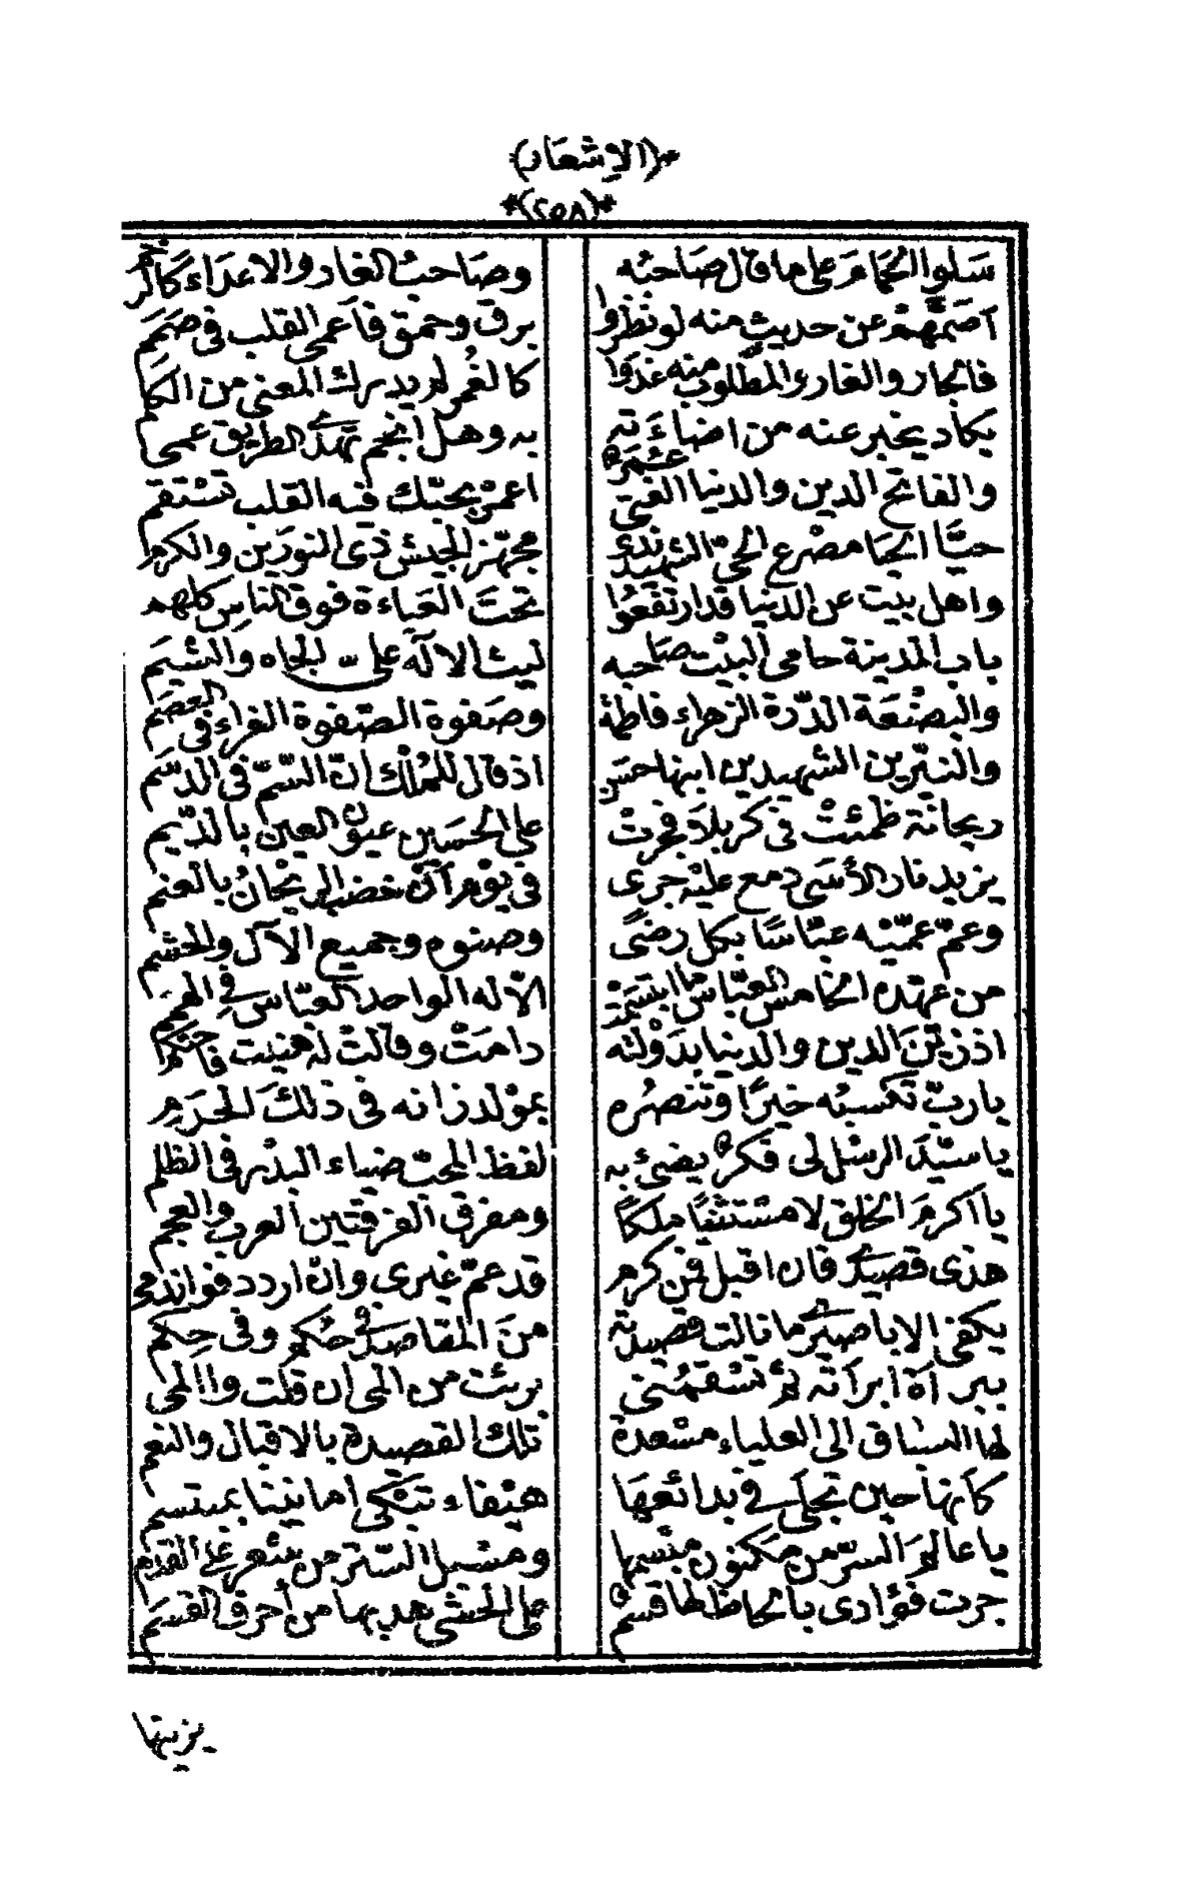 (الاشعار)
(٢٥٨)
سَلوا الحمامَ على ما قال صَاحبُه وصَاحبُ الغار والاعدَاء كَالرخم
اَصَمَّهُمْ عن حديثٍ منه لو نظروا برق وخمق فاَعمى القلب فى صَمَم
فالجار والغار والمطلوب منه غدوا كالغُمر لم يدرك المعنى من الكَلم
يكاد يخبر عنه من اضاءَتَه به وهل انجم تهدى الطريق عمى
والفاتح الدين والدنيا الفتى عُمَر اعمرْ بحبّك فيه القلب تسْتقم
حيَّا الحيا مصْرع الحىّ الشهيد ندى مجهّز الجيش ذى النورَين والكرم
واهل بيت عن الدنيا قد ارتفعُوا تحتَ العَباءة فوق الناسِ كلهم
باب المدينة حامى البيْت صاحبه ليث الاله علىّ الجاه والشيَم
والبضْعَة الدّرة الزهراء فاطمة وصَفوة الصّفوة الغراء فى العصَم
والنيّرين الشهيدين ابنها حسَن اذ قال للمُلْك انّ السّمّ فى الدسَم
ريحانة ظمئتْ فى كربلاَ فجرتْ على الحسَين عيون العين بالدّيم
يزيد نار الأسَى دمع عليْه جرى فى يوْم آن خضب الريْحانُ بالعنم
وعمّ عمّيْه عبّاسًا بكل رضًى وصنوه وجميع الآل والحشم
من عهده الخامس العبّاس ما ابتسمَتْ الّا له الواحد العبّاس فى
اذ زيّنَ الدين والدنيا بدَوْلته دامَتْ وقالتْ له هنيت فاحتكم
ياربّ تكسبُه خيرًا وتنصُره بموْلد زانه فى ذلكَ الحرَم
يا سيّدَ الرسْل لى فكرٌ يضئ به لفظ المحبّ ضياء البدْر فى الظلم
يا اكرمَ الخلق لا مسْتثنيًا ملكاً ومفرق الفرقتين العرب والعجم
هذى قصيدى فان اقبل فمن كرم قد عمّ غيرى وان اردد فواندمى
يكفى الاباصيرى ما نالت قصيدته منَ المقاصد فى حُكمٍ وفى حِكَم
ببرآة ابرأته لم تسْقمُنى برئت من الحى ان قلت والمحى
لها السباق الى العلياء مسْعدة تلك القصيدة بالاقبال والنعم
كأنها حين تجلى فى بدائعهَا هيْفاء تبْكى امانينا بمبتسم
يا عالمَ السرّ من مكنون مبْسمها ومسْبل السّتر من شعر على القدم
جرت فؤادى بالحاظ لها قسمٌ على الحشى هدبها من أحرف القسَم
يزينها